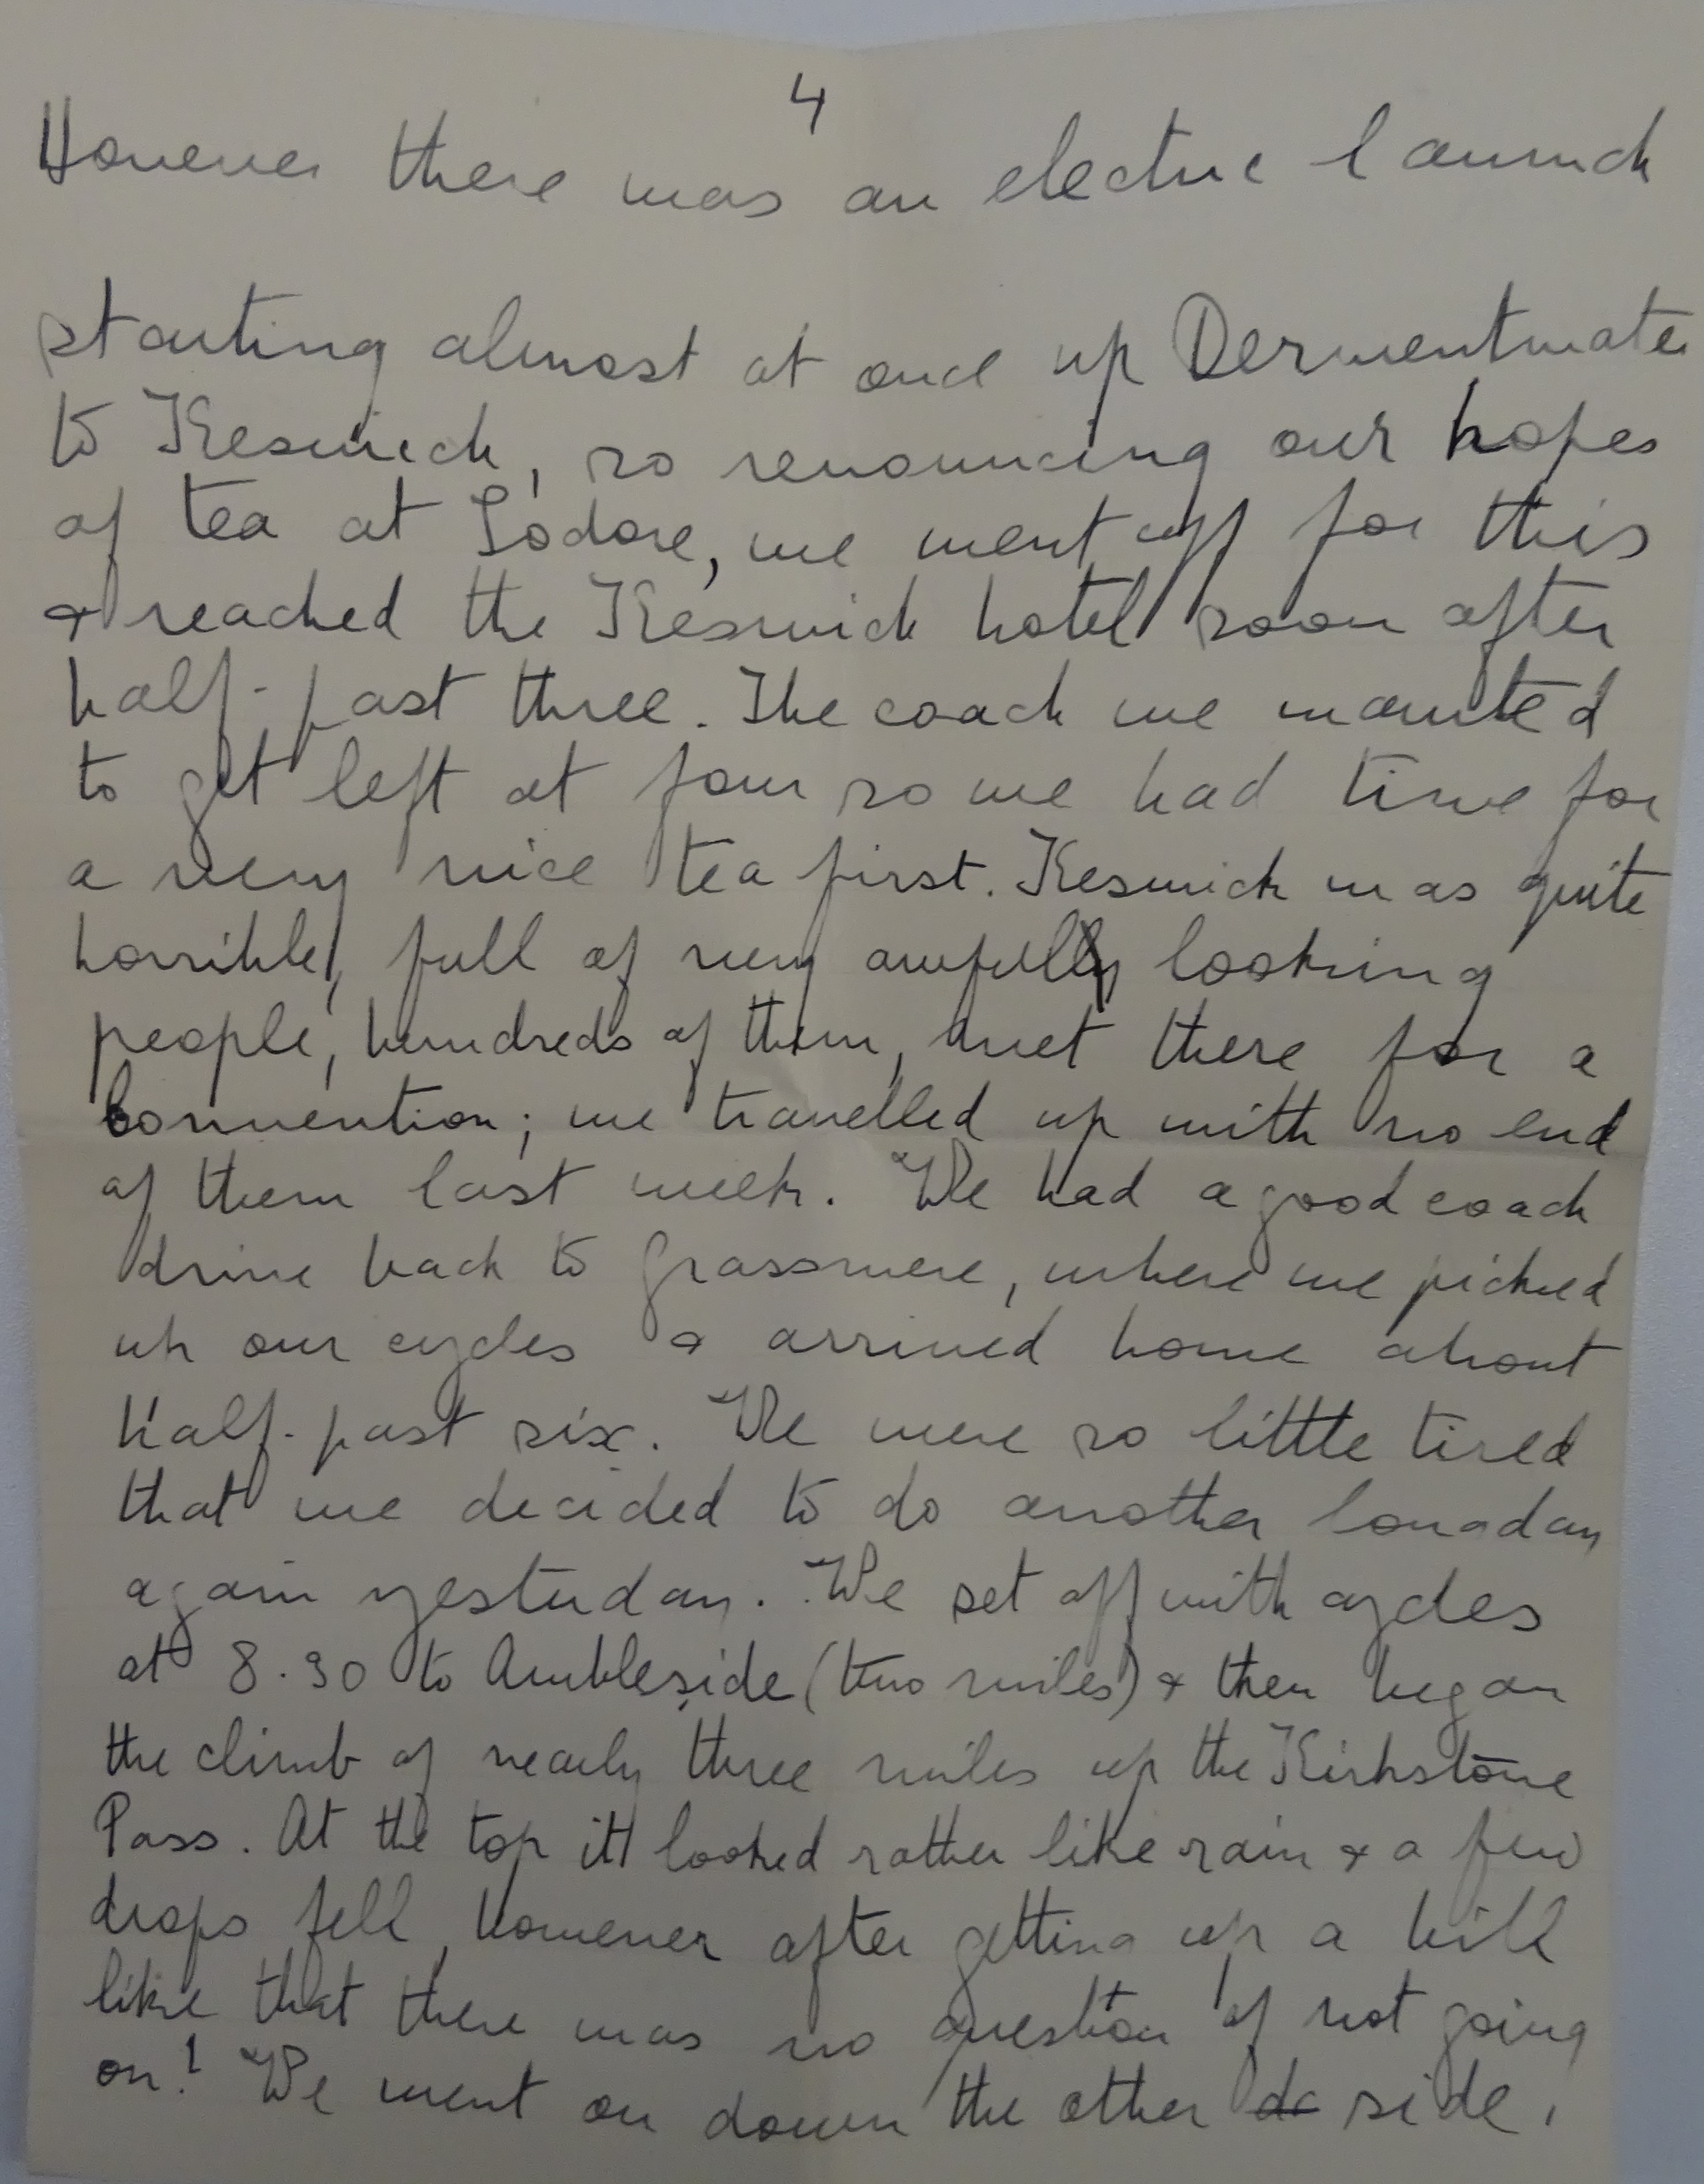 4
However there was an electric launch
starting almost at once up Derwentwater
to Keswick, so renouncing our hopes
of tea at Lodore, we went off for this
& reached the Keswick hotel soon after
half-past three. The coach we wanted
to get left at four so we had time for
a very nice tea first. Keswick was quite
horrible, full of very awful looking
people, hundreds of them, met there for a
Convention; we travelled up with no end
of them last week. We had a good coach
drive back to Grassmere, where we picked
up our cycles & arrived home about
half-past six. We were so little tired
that we decided to do another long day
again yesterday. We set off with cycles
at 8.30 to Ambleside (two miles) & then began
the climb of nearly three miles up the Kirkstone
Pass. At the top it looked rather like rain & a few
drops fell, however after getting up a hill
like that there was no question of not going
on! We went on down the other side,